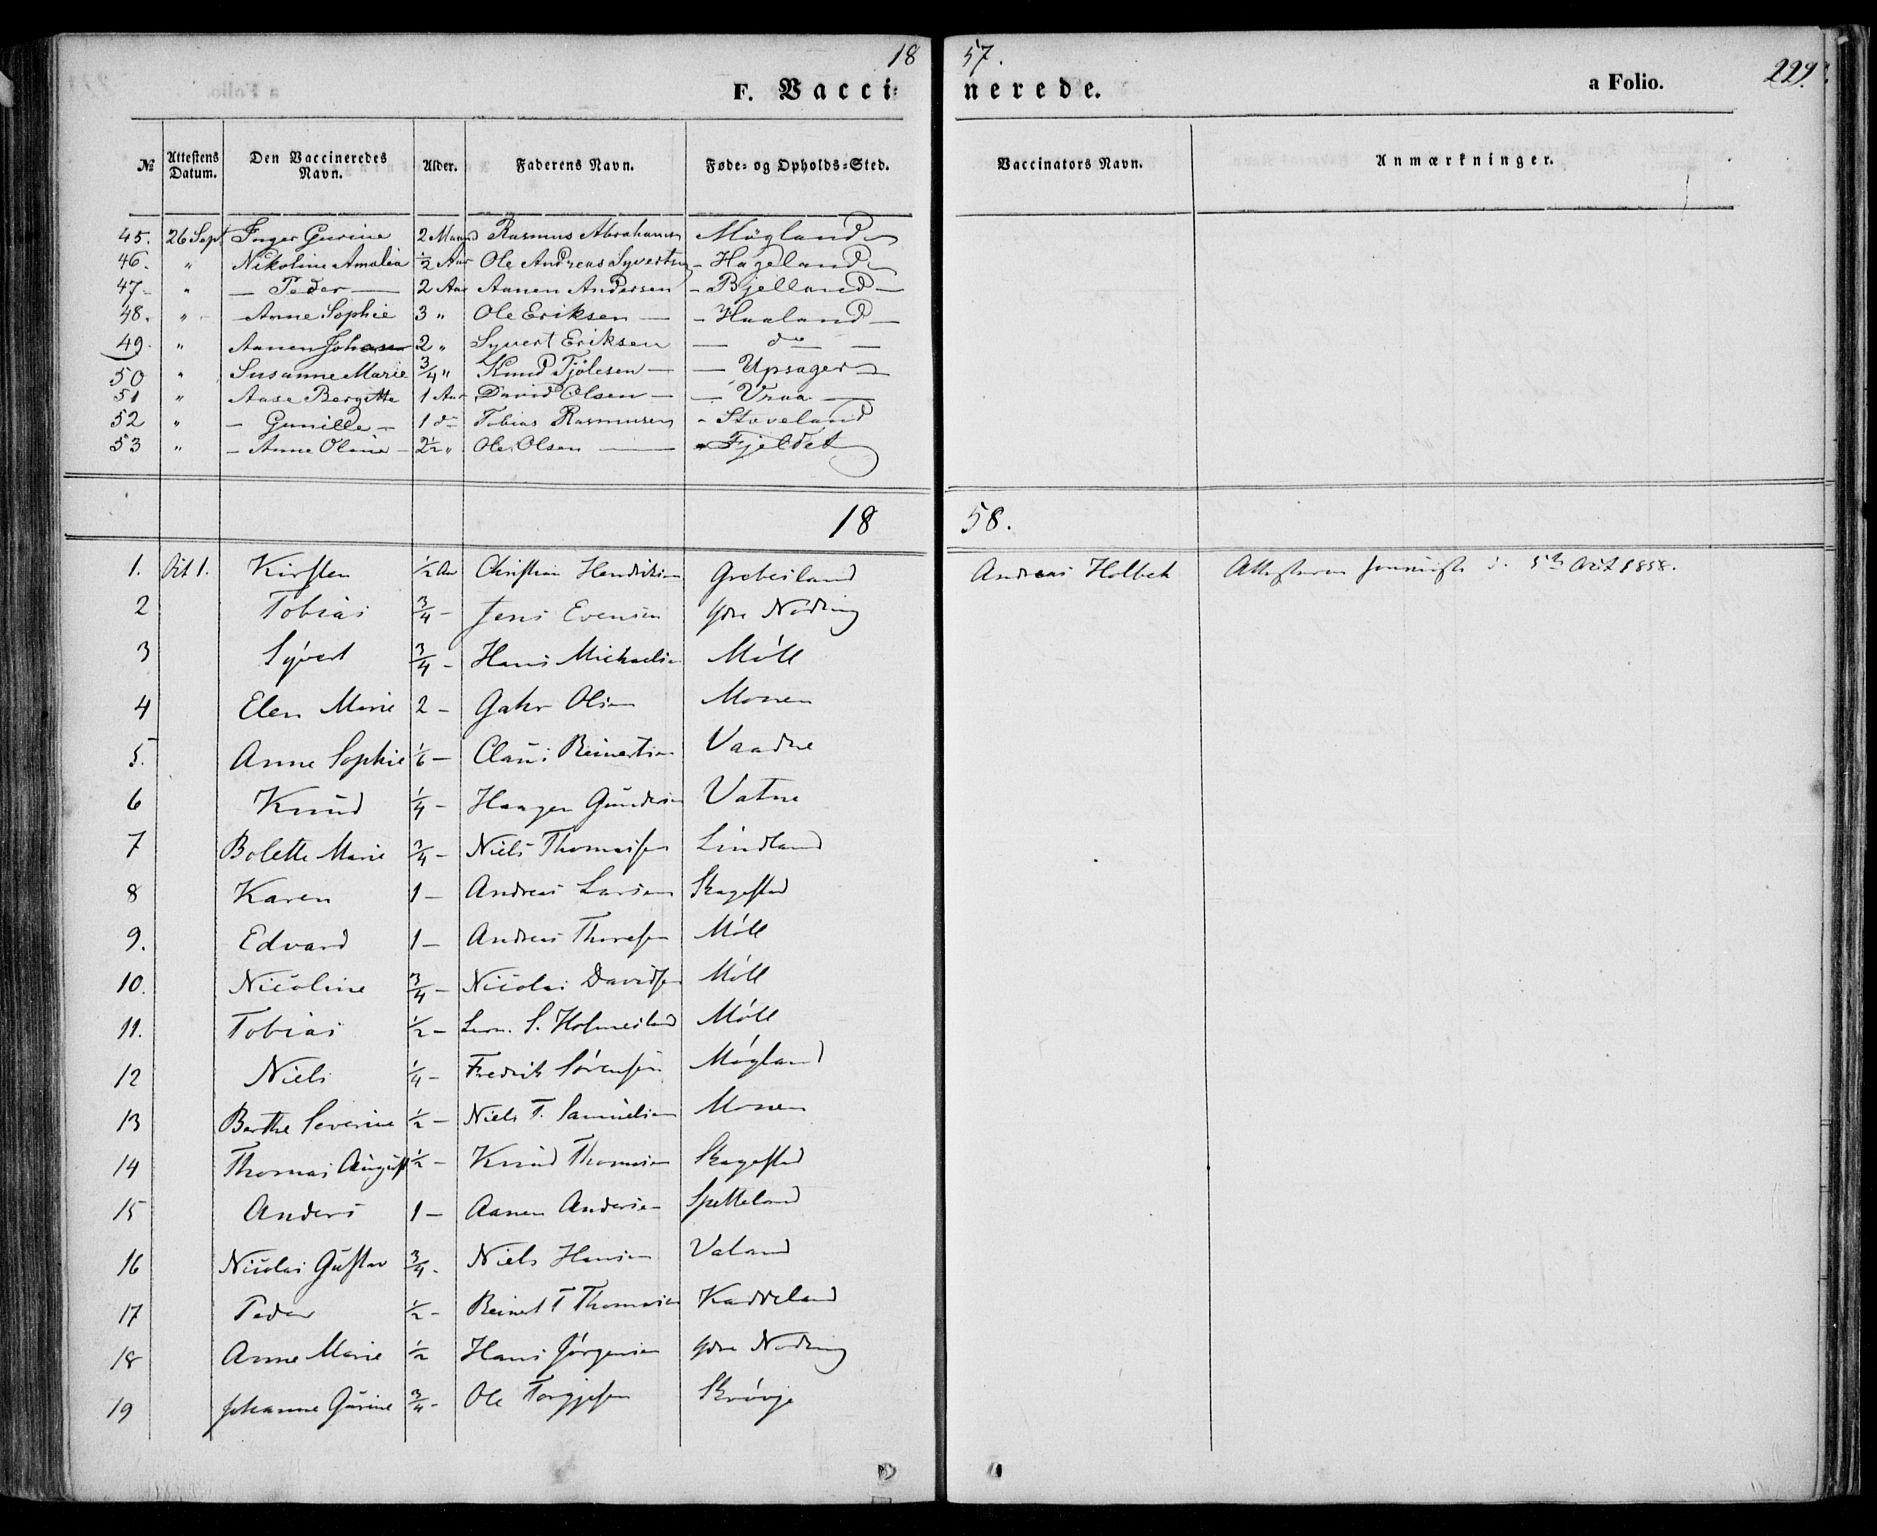 1857.
F. Vaccinerede.
a Folio. 229.
№ Attestens Datum. Den Vaccineredes Navn. Alder. Faderens Navn. Føde- og Opholds-Sted. Vaccinators Navn. Anmærkninger.
45. 26 Sept Inger Gurine 2 Maaned Rasmus Abrahamsen Møgland
46. " Nikoline Amalia ½ Aar Ole Andreas Syvertsen - Hageland
47 - " — Peder — 2 Aar Aanen Andersen - Bjelland -
48. " - Anne Sophie 3 " Ole Eriksen — - Haaland -
49. " Aanen Johan 2 " Syvert Eriksen — do —
50 " Susanne Marie ¾ " Knud Tjølesen — — Upsager -
51 " Aase Bergitte 1 Aar David Olsen — — Vraa —
52 " - Gunille - 1 d- Tobias Rasmussen - Stoveland
53 " - Anne Oline - 2½ " Ole Olsen — - Fjeldet
1858.
1. Oct 1. Kirsten ½ Aar Christian Hendriksen Grobesland Andreas Holbek 5te Oct 1858.
2 Tobias ¾ - Jens Evensen Ydre Noding
3 Syvert ¾ - Hans Michaelsen Møll
4 Elen Marie 2 - Gahr Olsen Monen
5. Anne Sophie ⅙ - Claus Reinertsen Vaadne
6 Knud ¼ - Haagen Gundersen Vatne
7 Bolette Marie ¾ - Niels Thomassen Lindland
8 Karen 1 - Andreas Larsen Skagestad
9. Edvard 1 - Andreas Thoresen Møll
10. Nicoline ¾ - Nicolai Davidsen Møll
11. Tobias ½ - S. Holmesland Møll
12 Niels ¼ - Fredrik Sørensen Møgland
13 Berthe Severine ½ - Niels T. Samuelsen Monen
14 Thomas August ½ - Knud Thomasen Skagestad
15 Anders 1 - Aanen Andersen Spetteland
16 Nicolai Gustav ¾ - Niels Hansen Valand
17 Peder ½ - Reinert T Thomasen Kaddeland
18 Anne Marie ½ Hans Jørgensen Ydre Noding
19 Johanne Gurine ¾ - Ole Torgjesen Skrøvje